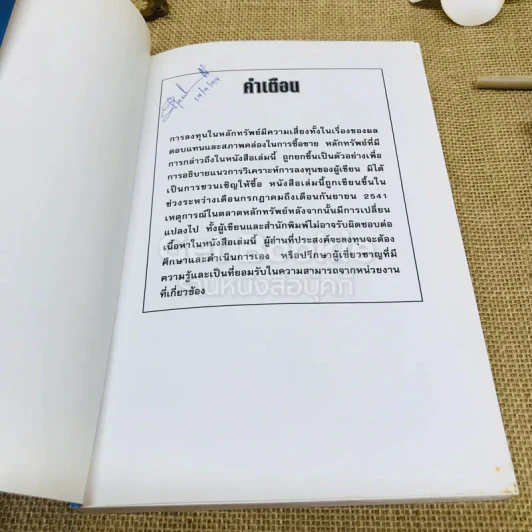 คำเตือน
การลงทุนในหลักทรัพย์มีความเสี่ยงทั้งในเรื่องของผล
ตอบแทนและสภาพคล่องในการซื้อขาย หลักทรัพย์ที่มี
การกล่าวถึงในหนังสือเล่มนี้ ถูกยกขึ้นเป็นตัวอย่างเพื่อ
การอธิบายแนวการวิเคราะห์การลงทุนของผู้เขียน มิได้
เป็นการชวนเชิญให้ซื้อ หนังสือเล่มนี้ถูกเขียนขึ้นใน
ช่วงระหว่างเดือนกรกฎาคมถึงเดือนกันยายน 2541
เหตุการณ์ในตลาดหลักทรัพย์หลังจากนั้นมีการเปลี่ยน
แปลงไป ทั้งผู้เขียนและสำนักพิมพ์ไม่อาจรับผิดชอบต่อ
เนื้อหาในหนังสือเล่มนี้ ผู้อ่านที่ประสงค์จะลงทุนจะต้อง
ศึกษาและดำเนินการเอง หรือปรึกษาผู้เชี่ยวชาญที่มี
ความรู้และเป็นที่ยอมรับในความสามารถจากหน่วยงาน
ที่เกี่ยวข้อง